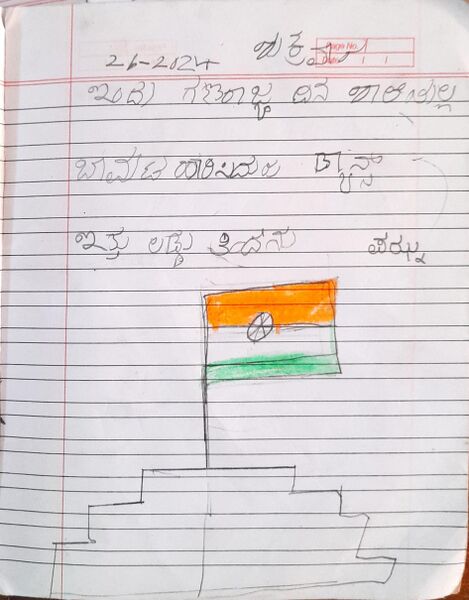 26-2024 ಶುಕ್ರವಾರ Page No.
Date
ಇಂದು ಗಣರಾಜ್ಯ ದಿನ ಶಾಲೆಯಲ್ಲಿ
ಬಾವುಟ ಹಾರಿಸಿದರು ಡ್ಯಾನ್ಸ್
ಇತ್ತು ಲಡ್ಡು ತಿಂದೆನು